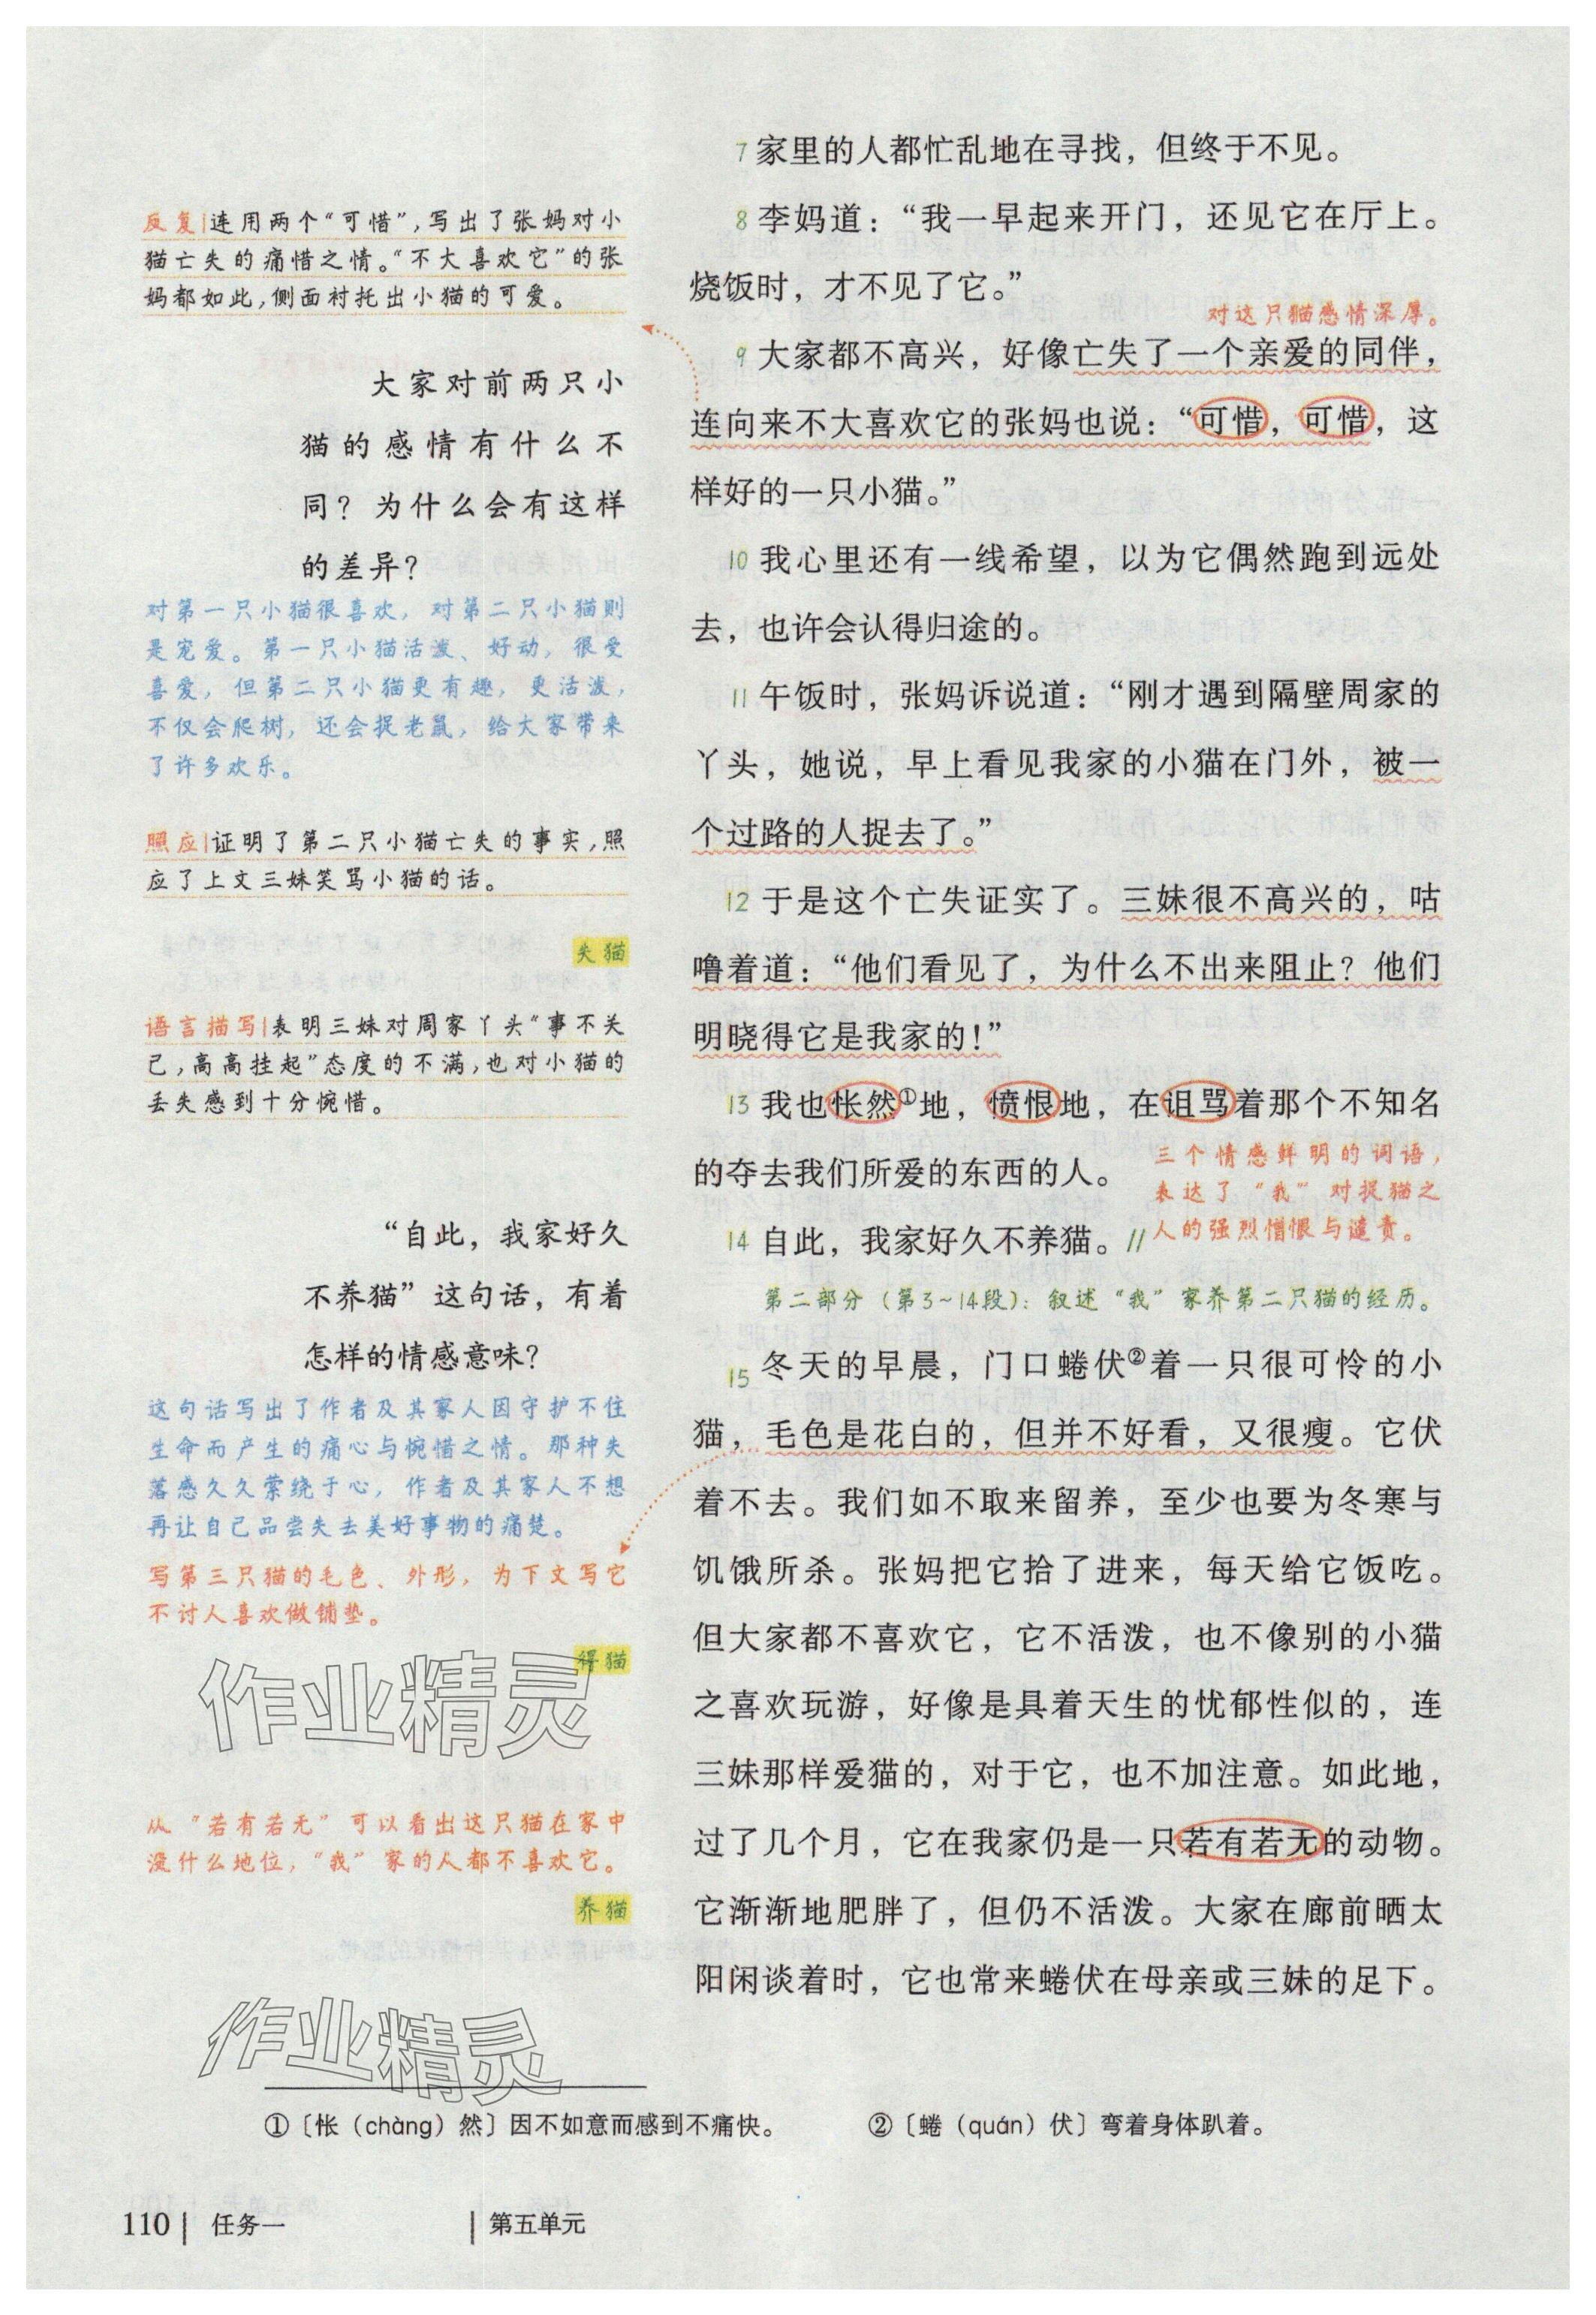 7 家里的人都忙乱地在寻找，但终于不见。
8 李妈道：“我一早起来开门，还见它在厅上。
烧饭时，才不见了它。”
对这只猫感情深厚。
9 大家都不高兴，好像亡失了一个亲爱的同伴，
连向来不大喜欢它的张妈也说：“可惜，可惜，这
样好的一只小猫。”
10 我心里还有一线希望，以为它偶然跑到远处
去，也许会认得归途的。
11 午饭时，张妈诉说道：“刚才遇到隔壁周家的
丫头，她说，早上看见我家的小猫在门外，被一
个过路的人捉去了。”
12 于是这个亡失证实了。三妹很不高兴的，咕
噜着道：“他们看见了，为什么不出来阻止？他们
明晓得它是我家的！”
13 我也怅然①地，愤恨地，在诅骂着那个不知名
的夺去我们所爱的东西的人。
三个情感鲜明的词语，
表达了“我”对捉猫之
人的强烈憎恨与谴责。
14 自此，我家好久不养猫。//
第二部分（第3~14段）：叙述“我”家养第二只猫的经历。
15 冬天的早晨，门口蜷伏②着一只很可怜的小
猫，毛色是花白的，但并不好看，又很瘦。它伏
着不去。我们如不取来留养，至少也要为冬寒与
饥饿所杀。张妈把它拾了进来，每天给它饭吃。
但大家都不喜欢它，它不活泼，也不像别的小猫
之喜欢玩游，好像是具着天生的忧郁性似的，连
三妹那样爱猫的，对于它，也不加注意。如此地，
过了几个月，它在我家仍是一只若有若无的动物。
它渐渐地肥胖了，但仍不活泼。大家在廊前晒太
阳闲谈着时，它也常来蜷伏在母亲或三妹的足下。
反复|连用两个“可惜”，写出了张妈对小
猫亡失的痛惜之情。“不大喜欢它”的张
妈都如此，侧面衬托出小猫的可爱。
大家对前两只小
猫的感情有什么不
同？为什么会有这样
的差异？
对第一只小猫很喜欢，对第二只小猫则
是宠爱。第一只小猫活泼、好动，很受
喜爱，但第二只小猫更有趣，更活泼，
不仅会爬树，还会捉老鼠，给大家带来
了许多欢乐。
照应|证明了第二只小猫亡失的事实，照
应了上文三妹笑骂小猫的话。
失猫
语言描写|表明三妹对周家丫头“事不关
己，高高挂起”态度的不满，也对小猫的
丢失感到十分惋惜。
“自此，我家好久
不养猫”这句话，有着
怎样的情感意味？
这句话写出了作者及其家人因守护不住
生命而产生的痛心与惋惜之情。那种失
落感久久萦绕于心，作者及其家人不想
再让自己品尝失去美好事物的痛楚。
写第三只猫的毛色、外形，为下文写它
不讨人喜欢做铺垫。
得猫
作业精灵
从“若有若无”可以看出这只猫在家中
没什么地位，“我”家的人都不喜欢它。
养猫
作业精灵
①〔怅（chàng）然〕因不如意而感到不痛快。
②〔蜷（quán）伏〕弯着身体趴着。
110| 任务一 |第五单元